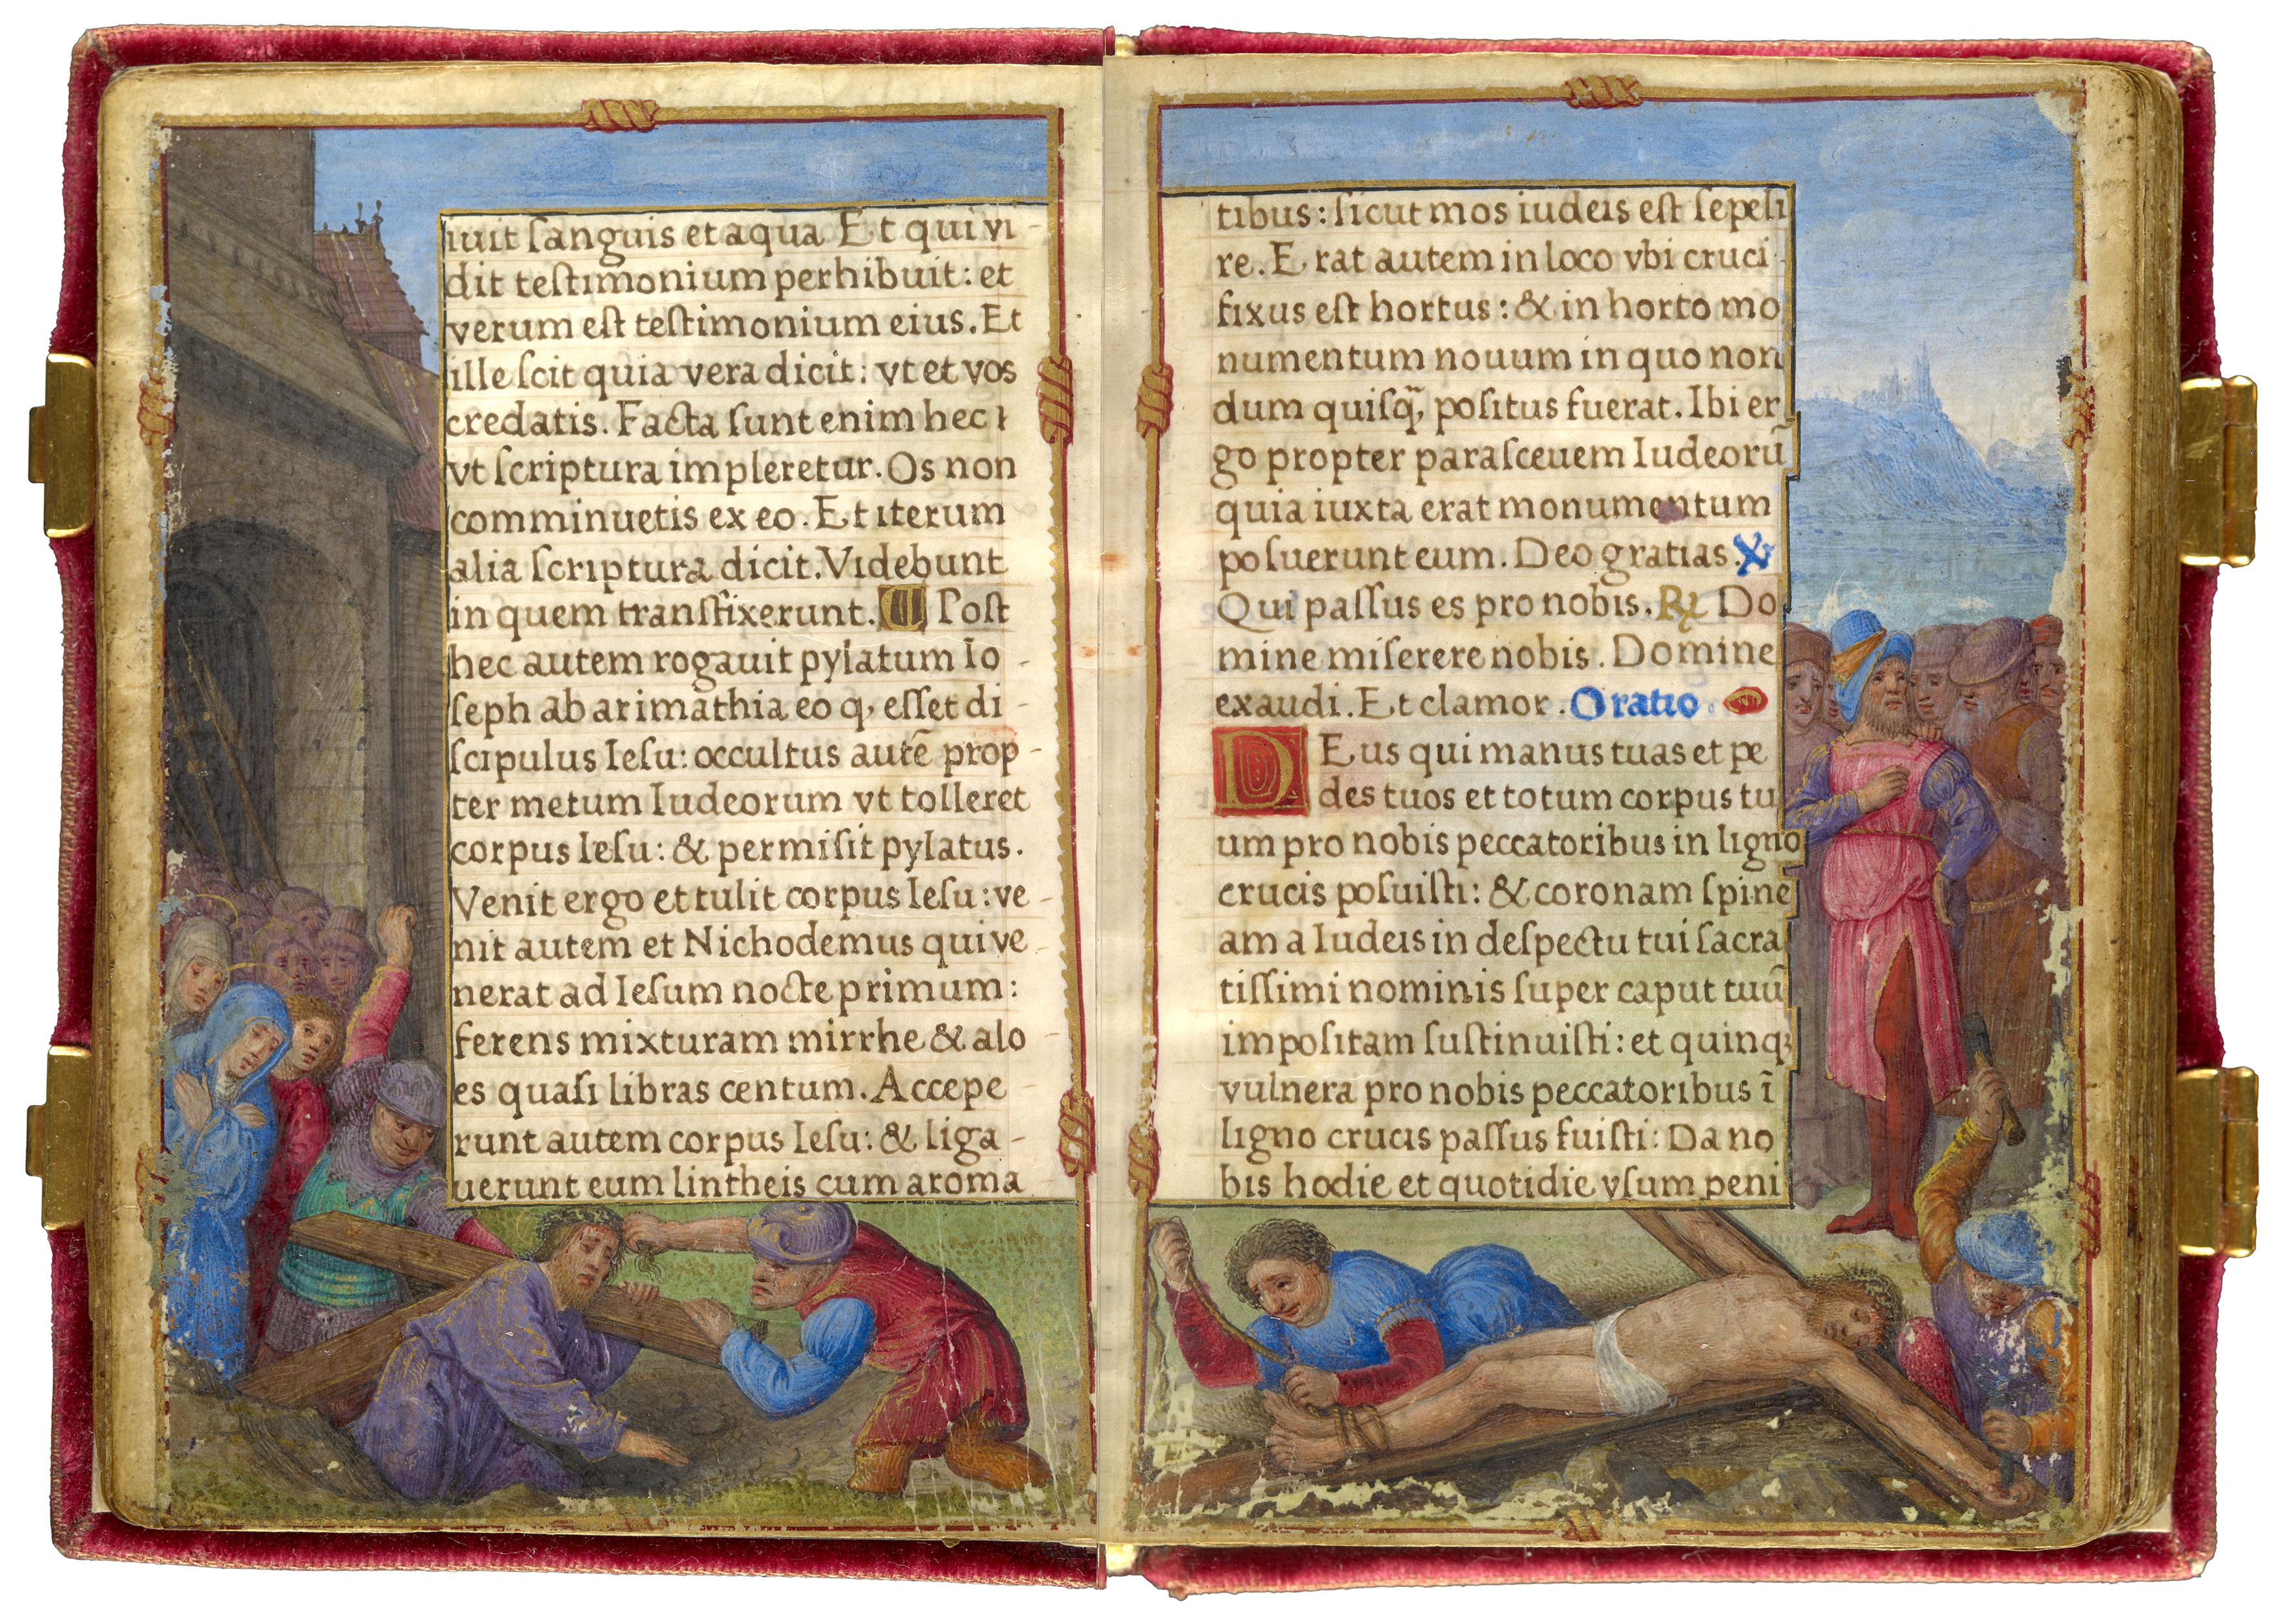 iuit ſanguis et aqua Et qui vi-
dit teſtimonium perhibuit: et
verum eſt teſtimonium eius. Et
ille ſcit quia vera dicit: vt et vos
credatis. Facta ſunt enim hec
vt ſcriptura impleretur. Os non
comminuetis ex eo. Et iterum
alia ſcriptura dicit. Videbunt
in quem transfixerunt. ¶ Poſt
hec autem rogauit pylatum Io-
ſeph ab arimathia eo q, eſſet di-
ſcipulus Ieſu: occultus autē prop-
ter metum Iudeorum vt tolleret
corpus Ieſu: & permiſit pylatus.
Venit ergo et tulit corpus Ieſu: ve-
nit autem et Nichodemus qui ve-
nerat ad Ieſum nocte primum:
ferens mixturam mirrhe & alo-
es quaſi libras centum. Accepe-
runt autem corpus Ieſu: & liga-
uerunt eum lintheis cum aroma
tibus: ſicut mos iudeis eſt ſepeli
re. Erat autem in loco vbi cruci
fixus eſt hortus: & in horto mo
numentum nouum in quo non
dum quiſq̃, poſitus fuerat. Ibi er
go propter paraſceuem Iudeorū
quia iuxta erat monumentum
poſuerunt eum. Deo gratias. ℣
Qui paſſus es pro nobis. ℟ Do
mine miſerere nobis. Domine
exaudi. Et clamor. Oratio
DEus qui manus tuas et pe
des tuos et totum corpus tu
um pro nobis peccatoribus in ligno
crucis poſuiſti: & coronam ſpine
am a Iudeis in deſpectu tui ſacra
tiſſimi nominis ſuper caput tuū
impoſitam ſuſtinuiſti: et quinqꝫ
vulnera pro nobis peccatoribus ī
ligno crucis paſſus fuiſti: Da no
bis hodie et quotidie vſum peni